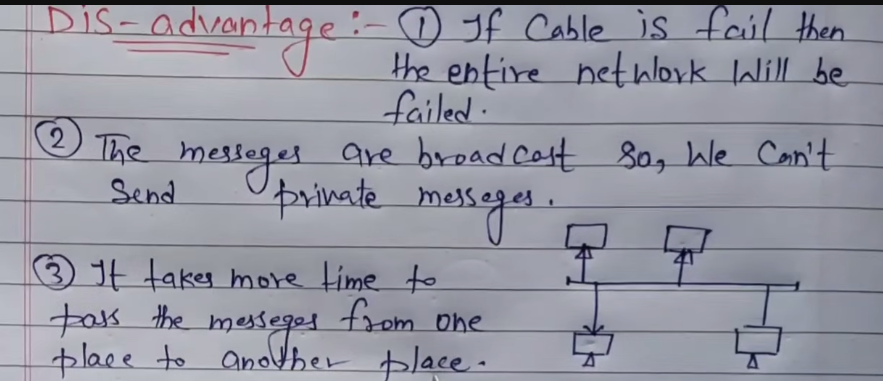 Dis-advantage :- ① If Cable is fail then
the entire network Will be
failed.
② The messeges are broadcast So, We Can't
Send private messeges.
③ It takes more time to
pass the messeges from one
place to another place.